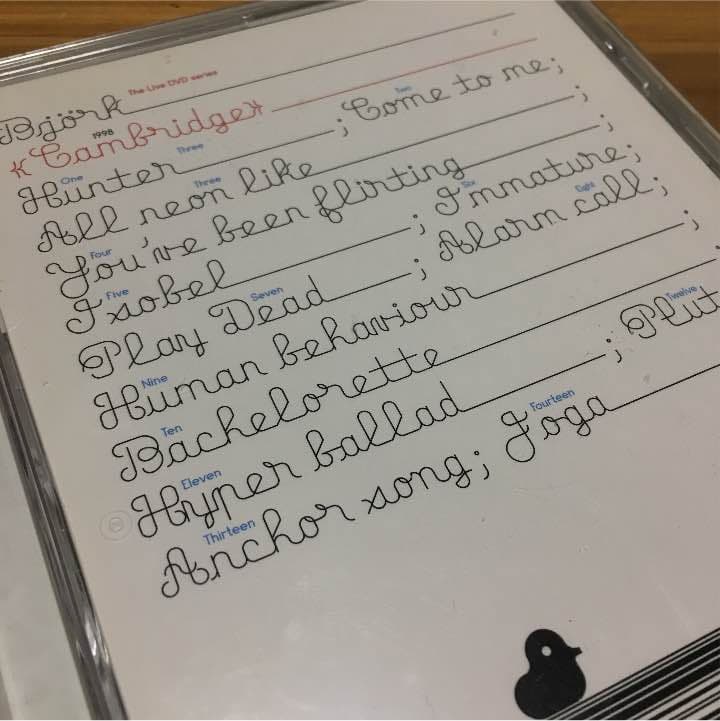 Björk The Live DVD series
«Cambridge»
1998 Two
; Come to me;
One Three
Hunter
Three
All neon like ;
Four
You've been flirting ;
Five Six
Isobel ; Immature;
Seven Eight
Play Dead ; Alarm call;
Nine
Human behaviour ;
Ten
Bachelorette
Eleven Twelve
Hyper ballad ; Plut
Thirteen Fourteen
Anchor song; Joga